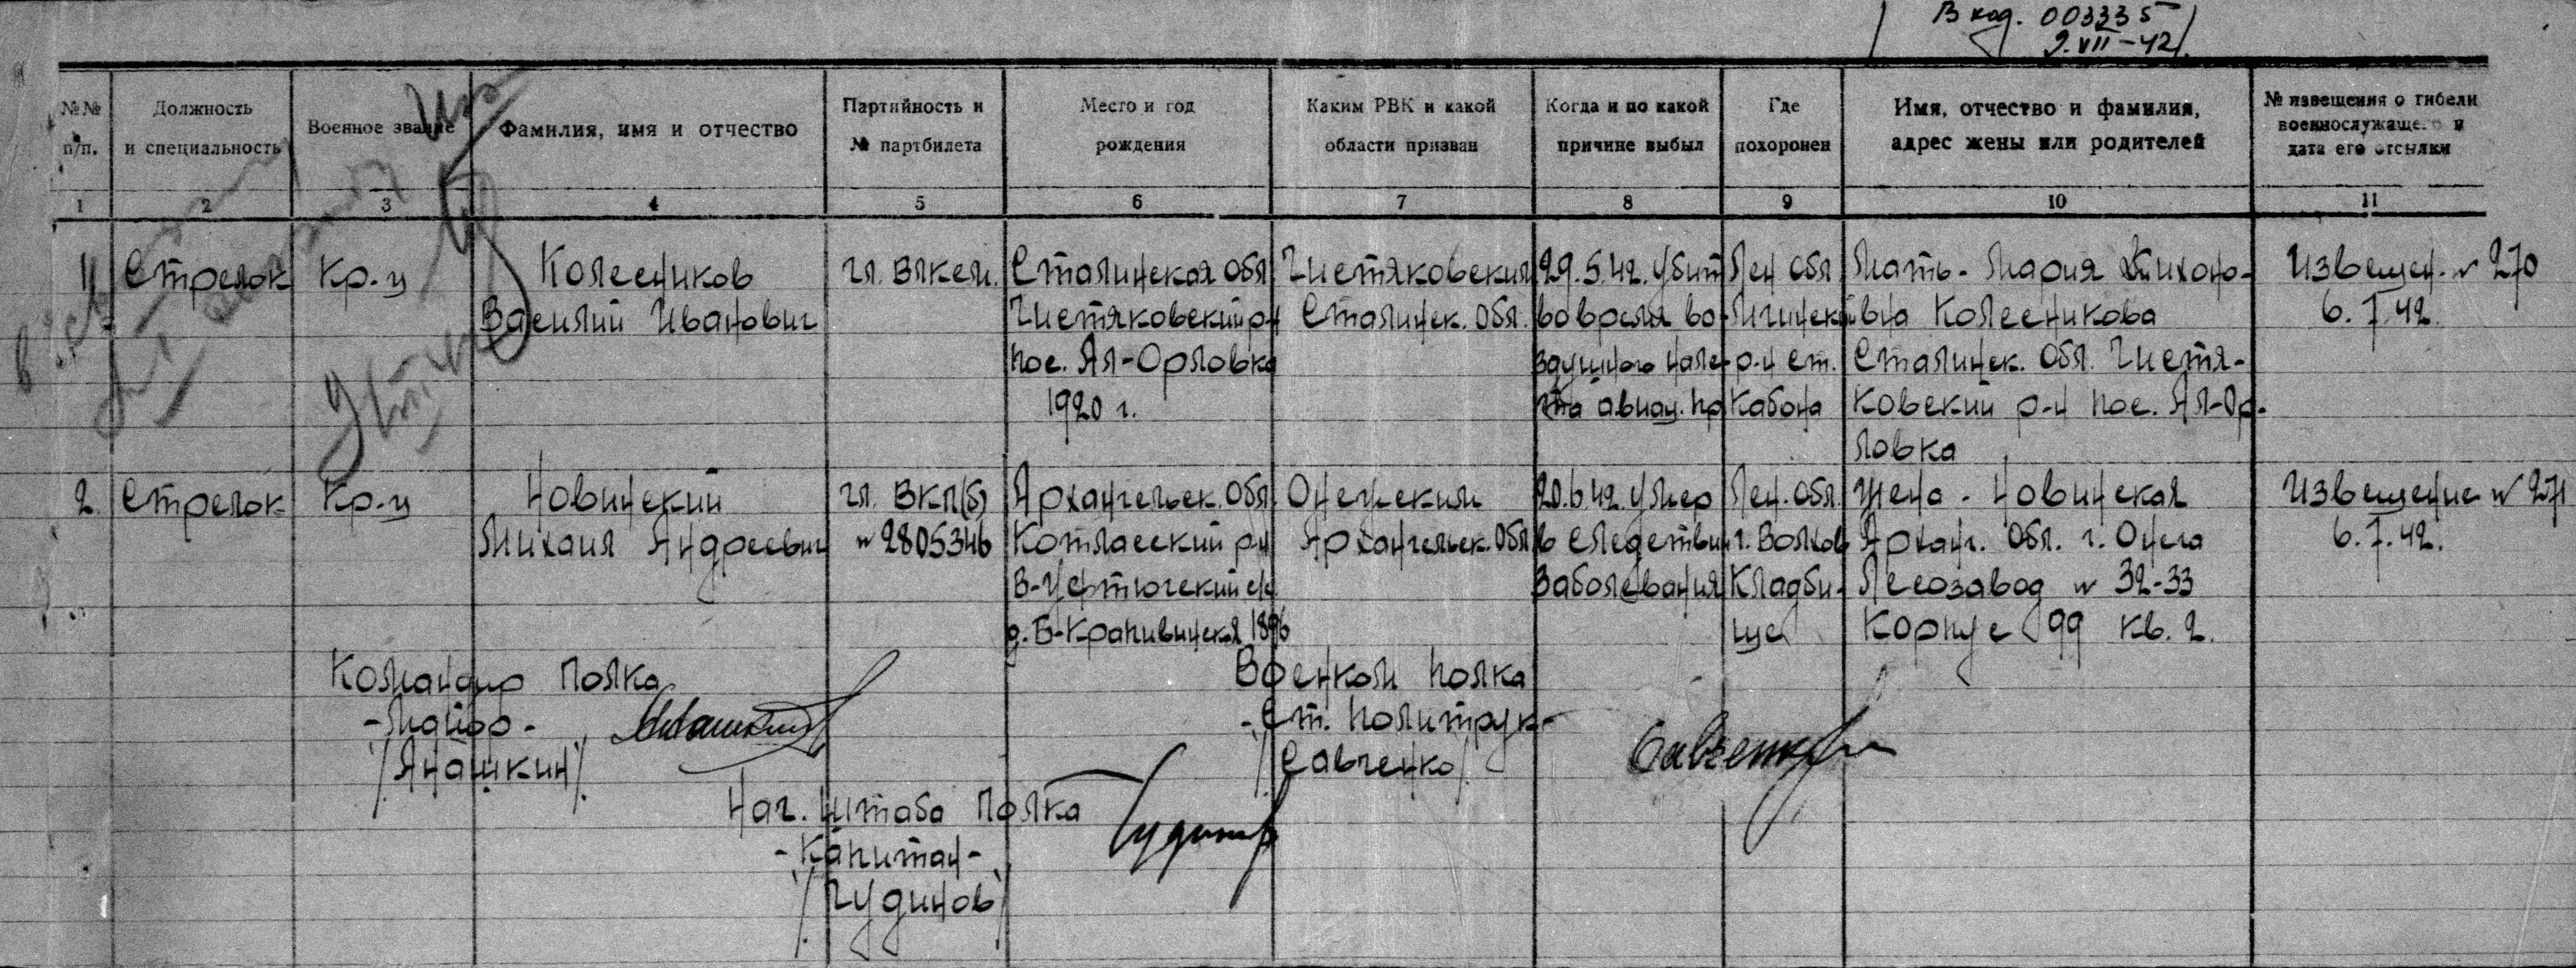 Вход. 003335
9.VII-42
№№ п/п.
Должность и специальность
Военное звание
Фамилия, имя и отчество
Партийность и № партбилета
Место и год рождения
Каким РВК и какой области призван
Когда и по какой причине выбыл
Где похоронен
Имя, отчество и фамилия, адрес жены или родителей
№ извещения о гибели военнослужащего и дата его отсылки
1 2 3 4 5 6 7 8 9 10 11
1 Стрелок Кр-ц Колесников чл. ВЛКСМ. Сталинская Обл Чистяковский 29.5.42. Убит Лен Обл Мать - Мария Тихоно- Извещен. № 270
Василий Иванович Чистяковский р-н Сталинск. Обл. во время во- Мгинский вна Колесникова 6.7.42.
пос. Ал-Орловка здушного нале- р-н ст. Сталинск. Обл. Чистя-
1920 г. та авиац. пр Кабона ковский р-н пос. Ал-Ор-
ловка
2. Стрелок Кр-ц Новинский чл. ВКП(б) Архангельск. Обл. Онежским 20.6.42 Умер Лен. Обл. Жена - Новинская Извещение № 271
Михаил Андреевич № 2805346 Котласский р-н Архангельск. Обл. в следствии г. Волхов Арханг. Обл. г. Онега 6.7.42.
В-Чертюгский с/с заболевания Кладби- Лесозавод № 32-33
д. Б-Крапивинская 1896 ще Корпус 99 кв. 2.
Командир Полка Военком полка
-Майор- -Ст. политрук-
/Янашкин/ /Савченко/ Савченко
Нач. штаба Полка
-Капитан-
/Чудинов/